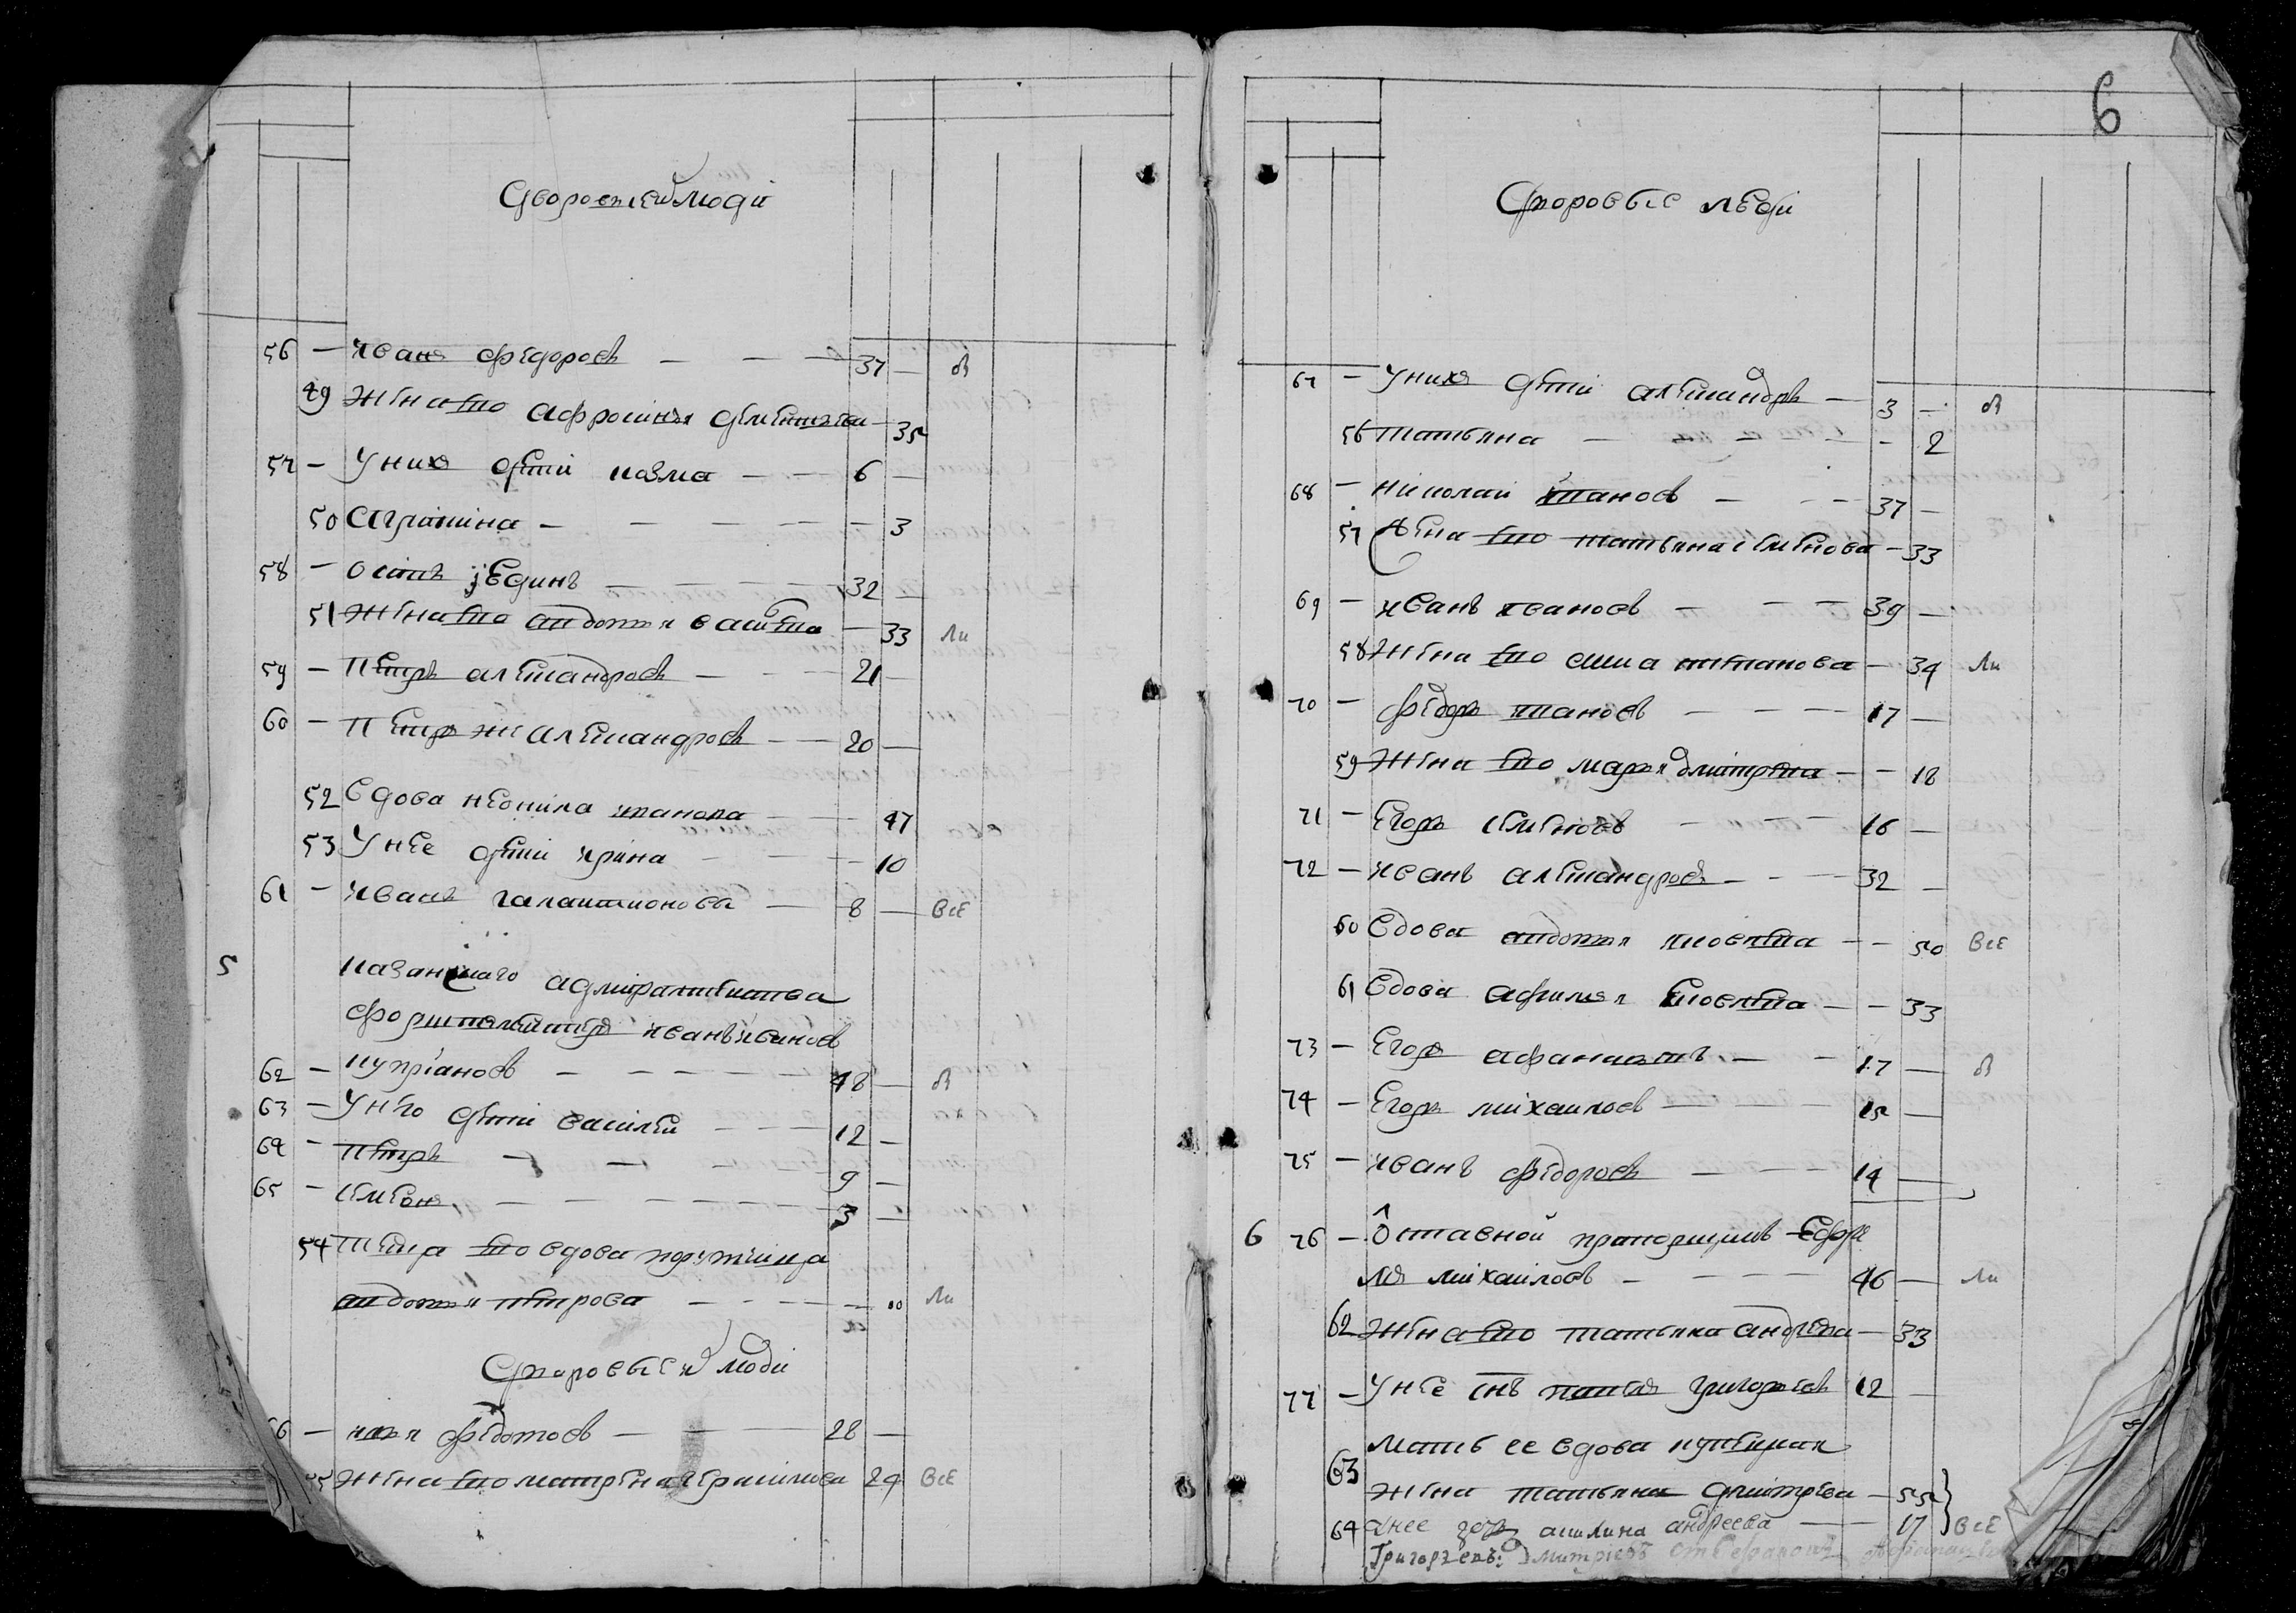 Дворовые люди
56 — иванъ федоровъ — — — 37 — в
49 жена ево афросинья дементьева — 35
57 — у них дети козма — — 6 —
50 аграфина — — — — — 3
58 — осипъ — — — 32 —
51 жена ево авдотья васильева — 33 ли
59 — Петръ александровъ — — — 21 —
60 — Петръ же александровъ — — 20 —
52 вдова неонила иванова — — 47
53 у нее дети ирина — — — 10
61 — иванъ галактионовъ — 8 — все
5 казанскаго адмиралтейства
иванъ ивановъ
62 — куприановъ — — — — — 48 — в
63 — у него дети василей — — — 12 —
64 — петръ — — — 9 —
65 — семенъ — — — — — 3 —
54 теща ево вдова
авдотья петрова — — — — 80 ли
Дворовые люди
66 — илья федотовъ — — — 28 —
55 жена ево матрена герасимова 24 все
6
Дворовые люди
67 — у них дети александръ — 3 — в
56 татьяна — — — — 2
68 — николай ивановъ — — — 37 —
57 жена ево татьяна семенова — 33
69 — иванъ ивановъ — — — 39 —
58 жена ево степанова — 34 ли
70 — федоръ ивановъ — — — 17 —
59 жена ево марья дмитрева — — 18
71 — Егоръ семеновъ — — — 16 —
72 — иванъ александровъ — — — 32 —
60 вдова авдотья яковлева — — 50 все
61 вдова афимья яковлева — — 33
73 — Егоръ афанасьевъ — — 17 — в
74 — Егоръ михаиловъ — — — 15 —
75 — иванъ федоровъ — — — 14 —
6 76 — Отставной прапорщикъ Ефре
мъ михаиловъ — — — — 46 — ли
62 жена ево татьяна андреева — 33
77 — у нее снъ григорьевъ 12 —
63 мать ее вдова
жена татьяна дмитрева — 55
64 у нее дочь акилина андреева — — 17 все
Григорьевъ: Дмитриевъ